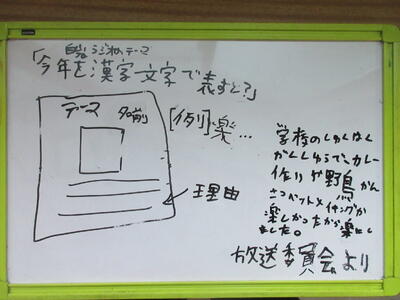 自分ラジオのテーマ
「今年を漢字文字で表すと?」
テーマ
名前
理由
[例]楽…
学校のしゅくはく
がくしゅうで、カレー
作りや野鳥かん
さつ
楽しかったから楽にし
ました。
放送委員会より